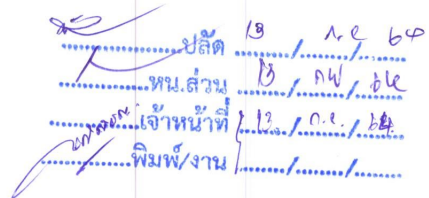 ปลัด 13 / ก.ย / 64
หน.ส่วน 13 / กย / 64
เจ้าหน้าที่ 13. / ก.ย. / 64
พิมพ์/งาน / /